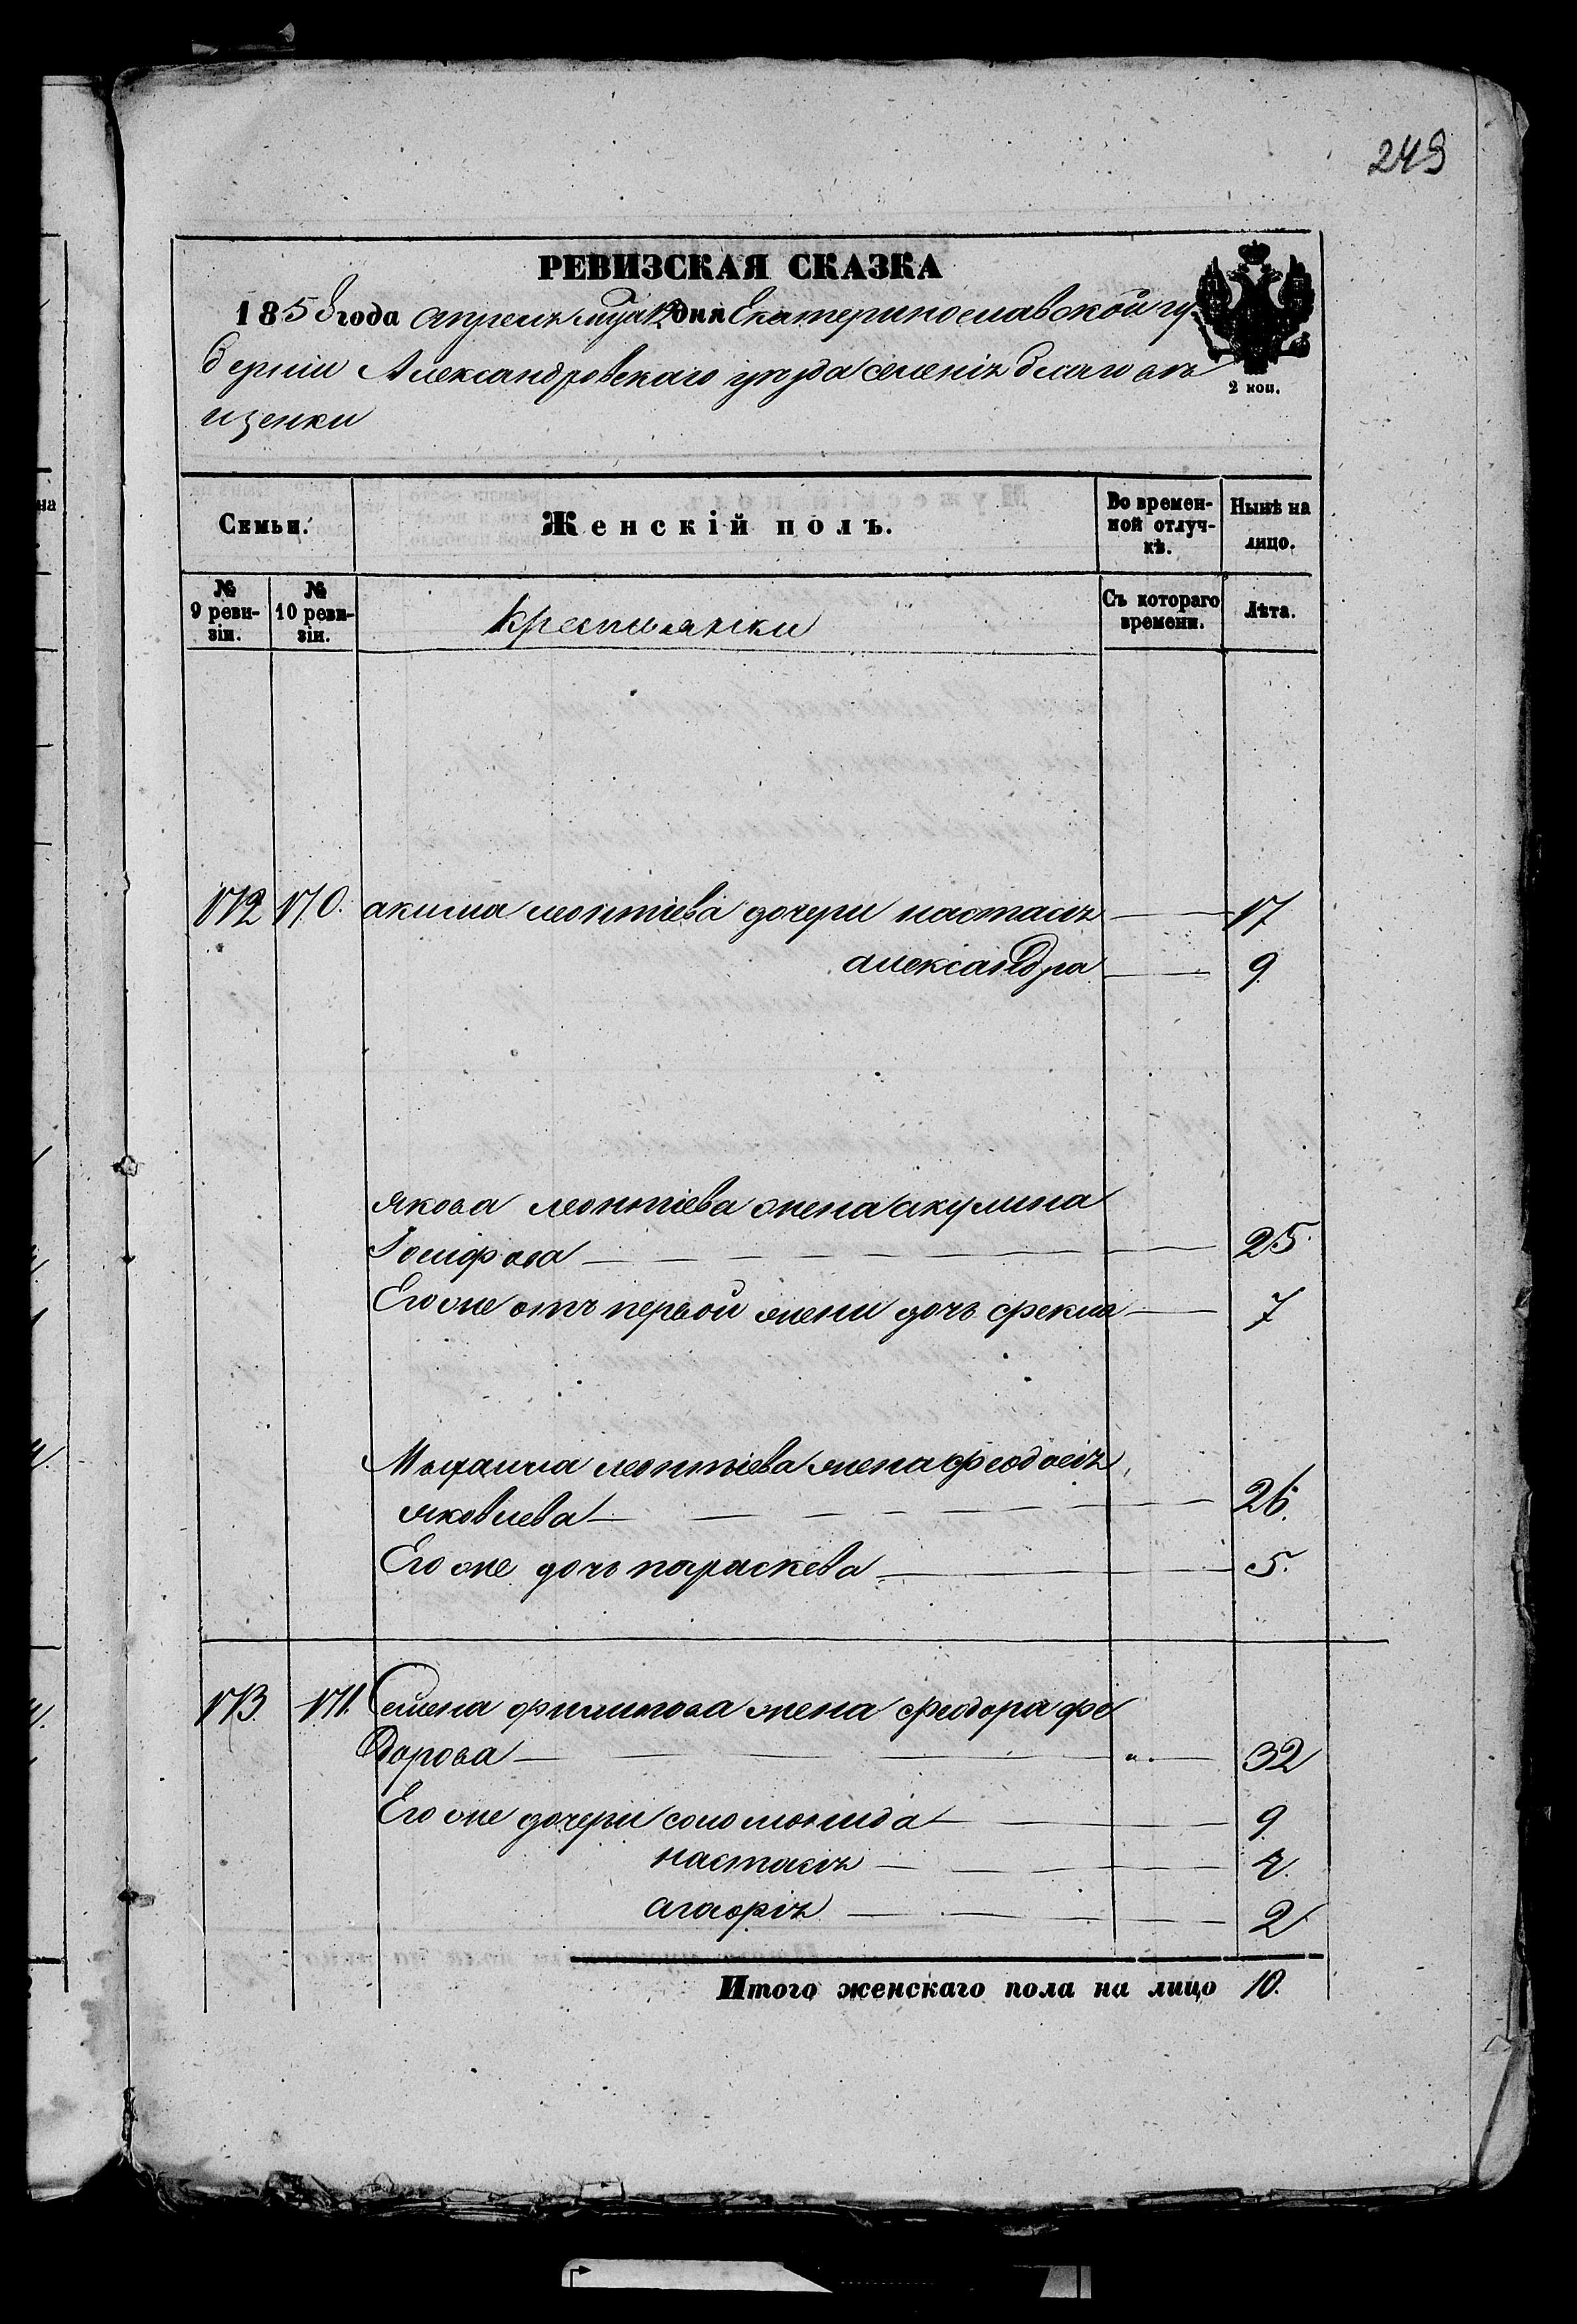 249
РЕВИЗСКАЯ СКАЗКА
1858 года апреля мца 12 дня Екатеринославской гу
берніи Александровскаго уезда селенія благовѣ
щенки
2 коп.
Семьи.
Женскій полъ.
Во времен-
ной отлуч-
кѣ.
Нынѣ на
лицо.
№
9 реви-
зіи.
№
10 реви-
зіи.
Крестьянки
Съ котораго
времени.
Лѣта.
172 170. акима леонтіева дочери настасія 17
александра 9
якова леонтіева жена акулина
Іосифова 25
Его же отъ первой жены дочь фекла 7
Михаила леонтіева жена феодосія
яковлева 26.
Его же дочь параскева 5.
173. 171. Семена филипова жена феодора фе
дорова 32
Его же дочери соломонида 9
настасія 4.
агафія 2
Итого женскаго пола на лицо 10.